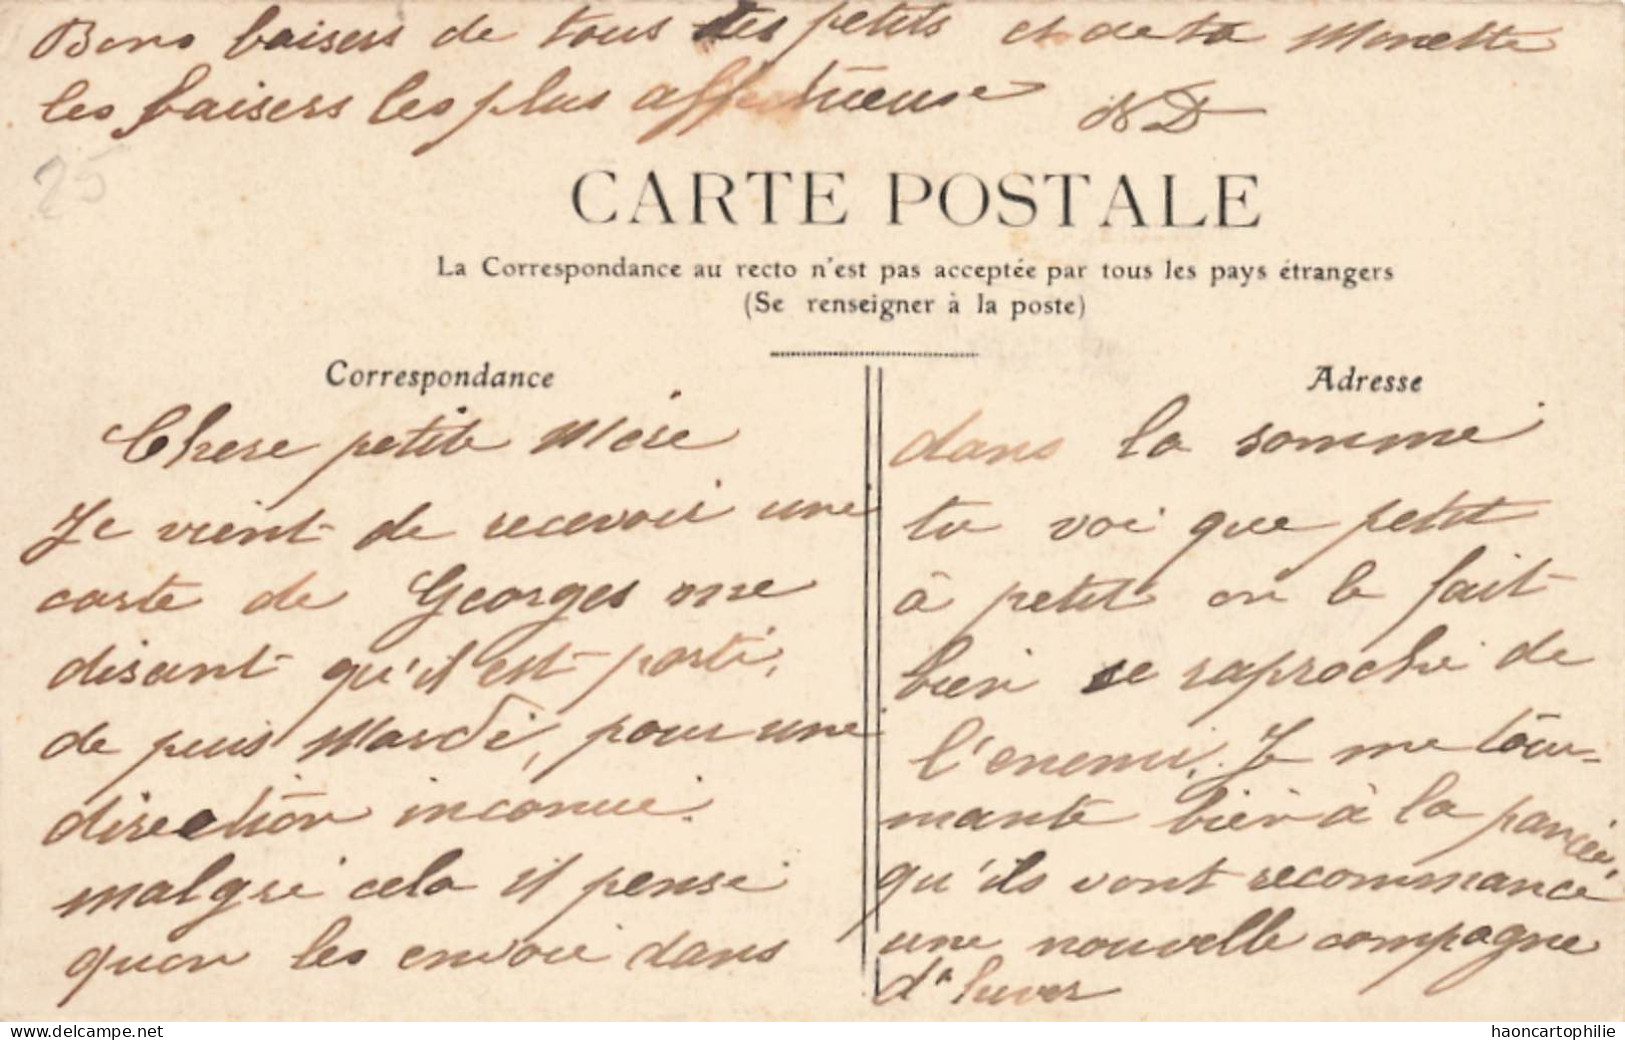 Bons baisers de tous tes petits et de ta Minette
les baisers les plus affectueuse ND
25
CARTE POSTALE
La Correspondance au recto n'est pas acceptée par tous les pays étrangers
(Se renseigner à la poste)
Correspondance
Chere petite Mére
Je vient de recevoir une
carte de Georges me
disant qu'il est parti,
de puis Mardi, pour une
direction inconnue
malgré cela il pense
quon les envoie dans
Adresse
dans la somme
tu voi que petit
à petit on le fait
bien se raproché de
l'enemi. Je me tour-
mante bien à la pancée
qu'ils vont recommancé
une nouvelle compagne
d'hiver
www.delcampe.net
haoncartophilie